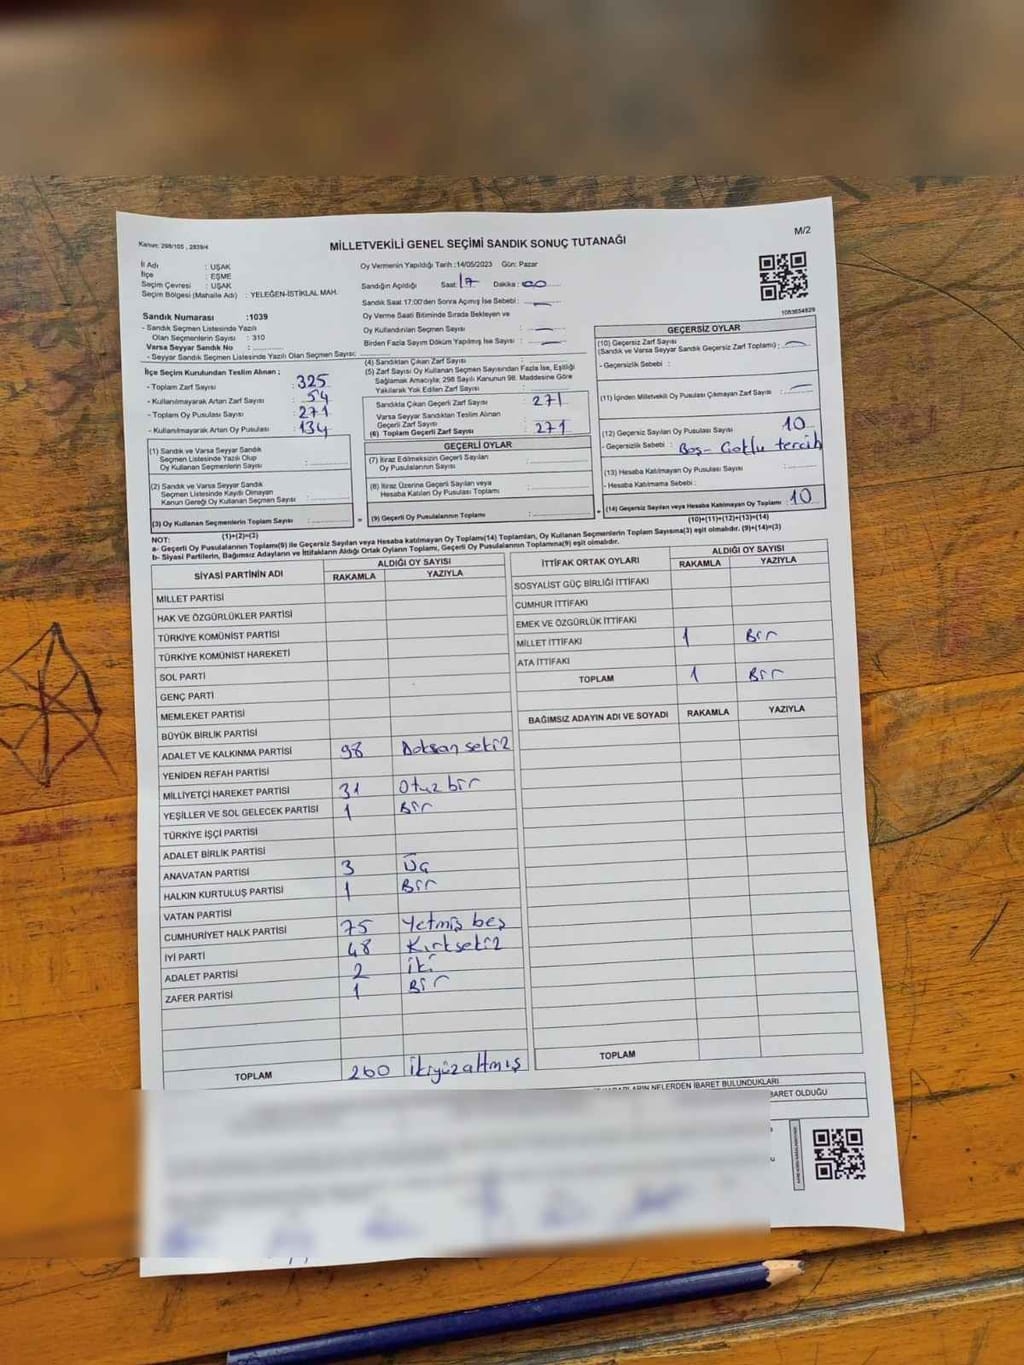 Kanun: 298/105 , 2839/4
MİLLETVEKİLİ GENEL SEÇİMİ SANDIK SONUÇ TUTANAĞI
M/2
İl Adı : UŞAK
İlçe : EŞME
Seçim Çevresi : UŞAK
Seçim Bölgesi (Mahalle Adı) : YELEĞEN-İSTİKLAL MAH.
Sandık Numarası :1039
- Sandık Seçmen Listesinde Yazılı
Olan Seçmenlerin Sayısı : 310
Varsa Seyyar Sandık No :
- Seyyar Sandık Seçmen Listesinde Yazılı Olan Seçmen Sayısı:
Oy Vermenin Yapıldığı Tarih :14/05/2023 Gün: Pazar
Sandığın Açıldığı Saat: 17 Dakika : 00
Sandık Saat 17:00'den Sonra Açılmış İse Sebebi :
Oy Verme Saati Bitiminde Sırada Bekleyen ve
Oy Kullandırılan Seçmen Sayısı :
Birden Fazla Sayım Döküm Yapılmış İse Sayısı :
1083654829
İlçe Seçim Kurulundan Teslim Alınan ;
- Toplam Zarf Sayısı : 325
- Kullanılmayarak Artan Zarf Sayısı : 54
- Toplam Oy Pusulası Sayısı : 271
- Kullanılmayarak Artan Oy Pusulası Sayısı : 134
(1) Sandık ve Varsa Seyyar Sandık
Seçmen Listesinde Yazılı Olup
Oy Kullanan Seçmenlerin Sayısı :
(2) Sandık ve Varsa Seyyar Sandık
Seçmen Listesinde Kaydı Olmayan
Kanun Gereği Oy Kullanan Seçmen Sayısı :
(3) Oy Kullanan Seçmenlerin Toplam Sayısı :
(1)+(2)=(3)
(4) Sandıktan Çıkan Zarf Sayısı :
(5) Zarf Sayısı Oy Kullanan Seçmen Sayısından Fazla İse, Eşitliği
Sağlamak Amacıyla; 298 Sayılı Kanunun 98. Maddesine Göre
Yakılarak Yok Edilen Zarf Sayısı :
Sandıkta Çıkan Geçerli Zarf Sayısı : 271
Varsa Seyyar Sandıktan Teslim Alınan
Geçerli Zarf Sayısı :
(6) Toplam Geçerli Zarf Sayısı : 271
GEÇERLİ OYLAR
(7) İtiraz Edilmeksizin Geçerli Sayılan
Oy Pusulalarının Sayısı :
(8) İtiraz Üzerine Geçerli Sayılan veya
Hesaba Katılan Oy Pusulası Toplamı :
= (9) Geçerli Oy Pusulalarının Toplamı :
GEÇERSİZ OYLAR
(10) Geçersiz Zarf Sayısı
(Sandık ve Varsa Seyyar Sandık Geçersiz Zarf Toplamı) :
- Geçersizlik Sebebi :
(11) İçinden Milletvekili Oy Pusulası Çıkmayan Zarf Sayısı :
(12) Geçersiz Sayılan Oy Pusulası Sayısı : 10
- Geçersizlik Sebebi : Boş- Çoklu tercih
(13) Hesaba Katılmayan Oy Pusulası Sayısı :
- Hesaba Katılmama Sebebi :
+ (14) Geçersiz Sayılan veya Hesaba Katılmayan Oy Toplamı : 10
(10)+(11)+(12)+(13)=(14)
NOT:
a- Geçerli Oy Pusulalarının Toplamı(9) ile Geçersiz Sayılan veya Hesaba katılmayan Oy Toplamı(14) Toplamları, Oy Kullanan Seçmenlerin Toplam Sayısına(3) eşit olmalıdır. (9)+(14)=(3)
b- Siyasi Partilerin, Bağımsız Adayların ve İttifakların Aldığı Ortak Oyların Toplamı, Geçerli Oy Pusulalarının Toplamına(9) eşit olmalıdır.
SİYASİ PARTİNİN ADI ALDIĞI OY SAYISI
RAKAMLA YAZIYLA
MİLLET PARTİSİ
HAK VE ÖZGÜRLÜKLER PARTİSİ
TÜRKİYE KOMÜNİST PARTİSİ
TÜRKİYE KOMÜNİST HAREKETİ
SOL PARTİ
GENÇ PARTİ
MEMLEKET PARTİSİ
BÜYÜK BİRLİK PARTİSİ
ADALET VE KALKINMA PARTİSİ 98 Doksan sekiz
YENİDEN REFAH PARTİSİ
MİLLİYETÇİ HAREKET PARTİSİ 31 Otuz bir
YEŞİLLER VE SOL GELECEK PARTİSİ 1 Bir
TÜRKİYE İŞÇİ PARTİSİ
ADALET BİRLİK PARTİSİ
ANAVATAN PARTİSİ 3 Üç
HALKIN KURTULUŞ PARTİSİ 1 Bir
VATAN PARTİSİ
CUMHURİYET HALK PARTİSİ 75 Yetmiş beş
İYİ PARTİ 48 Kırk sekiz
ADALET PARTİSİ 2 İki
ZAFER PARTİSİ 1 Bir
TOPLAM 260 İkiyüz altmış
İTTİFAK ORTAK OYLARI ALDIĞI OY SAYISI
RAKAMLA YAZIYLA
SOSYALİST GÜÇ BİRLİĞİ İTTİFAKI
CUMHUR İTTİFAKI
EMEK VE ÖZGÜRLÜK İTTİFAKI
MİLLET İTTİFAKI 1 Bir
ATA İTTİFAKI
TOPLAM 1 Bir
BAĞIMSIZ ADAYIN ADI VE SOYADI RAKAMLA YAZIYLA
TOPLAM
NELERDEN İBARET BULUNDUKLARI
İBARET OLDUĞU